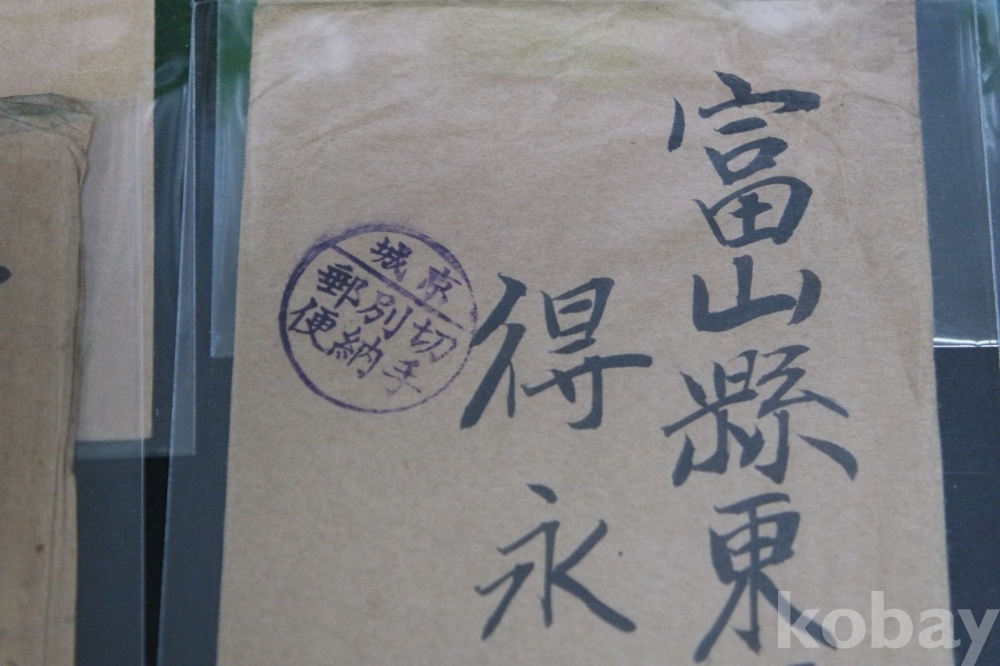 富山縣東
得永
京城
切手
別納
郵便
kobay